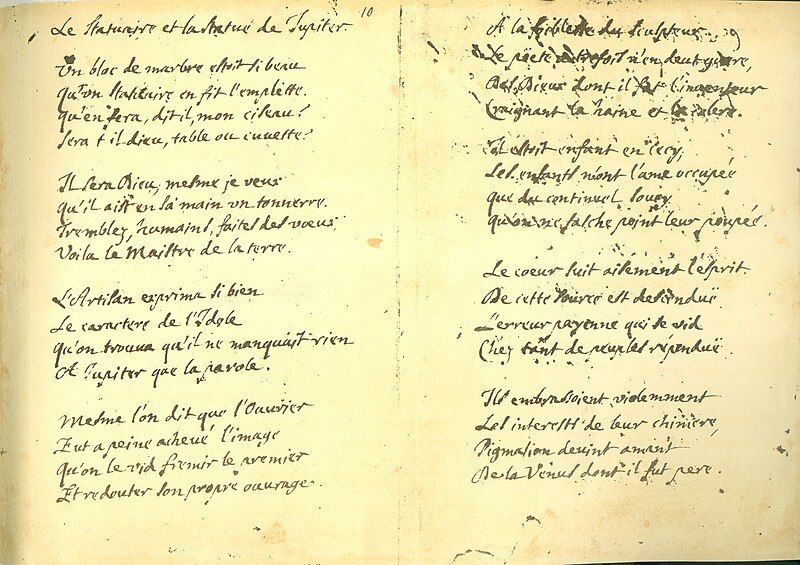 10
Le Statuaire et la Statue de Jupiter.
Un bloc de marbre estoit si beau
Qu'un Statuaire en fit l'emplette.
Qu'en fera, dit il, mon ciseau?
Sera t il dieu, table ou cuvette?
Il sera Dieu, mesme je veux
Qu'il ait en sa main un tonnerre.
Tremblez, humains, faites des vœux;
Voila le Maistre de la terre.
L'Artisan exprima si bien
Le caractere de l'Idole
Qu'on trouva qu'il ne manquait rien
A Jupiter que la parole.
Mesme l'on dit que l'Ouvrier
Eut a peine achevé l'image
Qu'on le vid fremir le premier
Et redouter son propre ouvrage.
A la foiblesse du Sculpteur
Le poete autrefois n'en deut guere,
Des Dieux dont il fut l'inventeur
Craignant la haine et la colere.
Il estoit enfant en cecy;
Les enfants n'ont l'ame occupée
que du continuel soucy
qu'on ne fasche point leur poupée.
Le coeur suit aisement l'esprit
De cette source est descenduë
L'erreur payenne qui se vid
Chez tant de peuples répenduë.
Ils embrassoient
Les interests de leur chimere,
Pigmalion devint amant
De la Venus dont il fut pere.